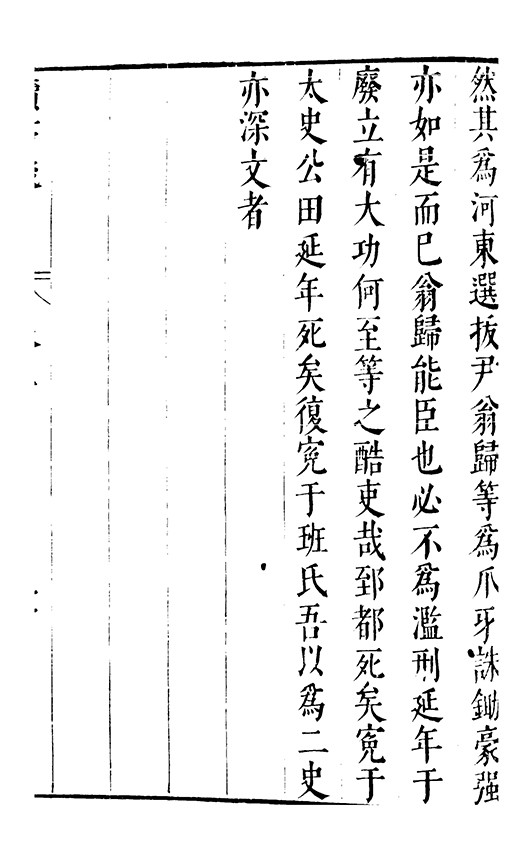 然其爲河東選拔尹翁歸等爲爪牙誅鋤豪强
亦如是而已翁歸能臣也必不爲濫刑延年于
廢立有大功何至等之酷吏哉郅都死矣寃于
太史公田延年死矣復寃于班氏吾以爲二史
亦深文者